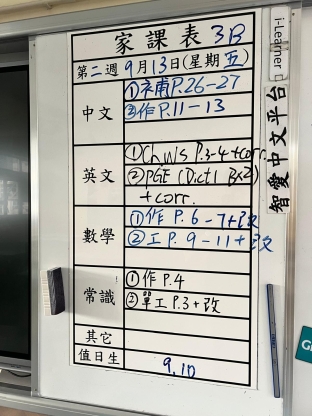 家課表 3B
第二週 9月13日(星期五)
中文
①補P.26-27
②作P.11-13
英文
①Ch.WS P.3-4+corr.
②PGE (Dict1 Bx2)
+corr.
數學
①作 P.6-7+改
②工P.9-11+改
常識
①作P.4
②單工P.3+改
其它
值日生
9,10
i-Learner
智愛中文平台